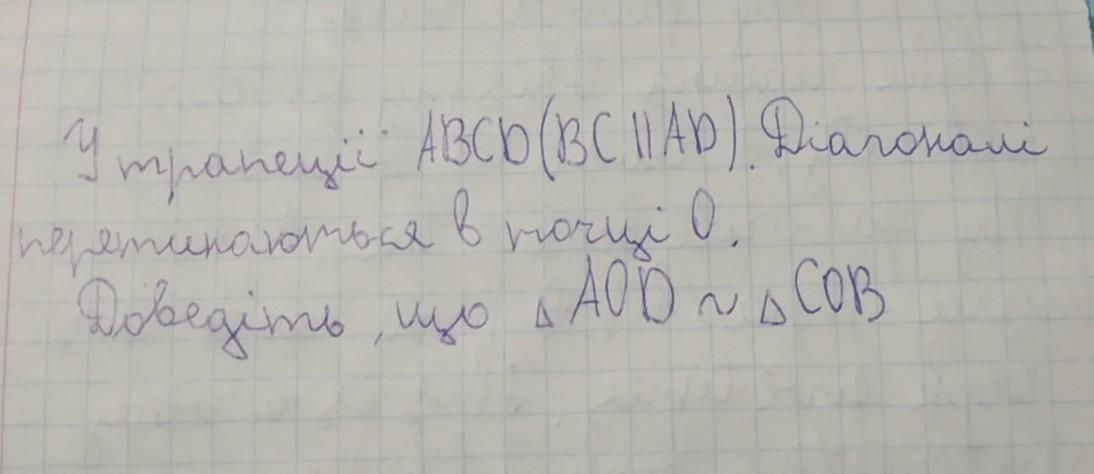 У трапеції ABCD (BC || AD). Діагоналі
перетинаються в точці O.
Доведіть, що △AOD ~ △COB